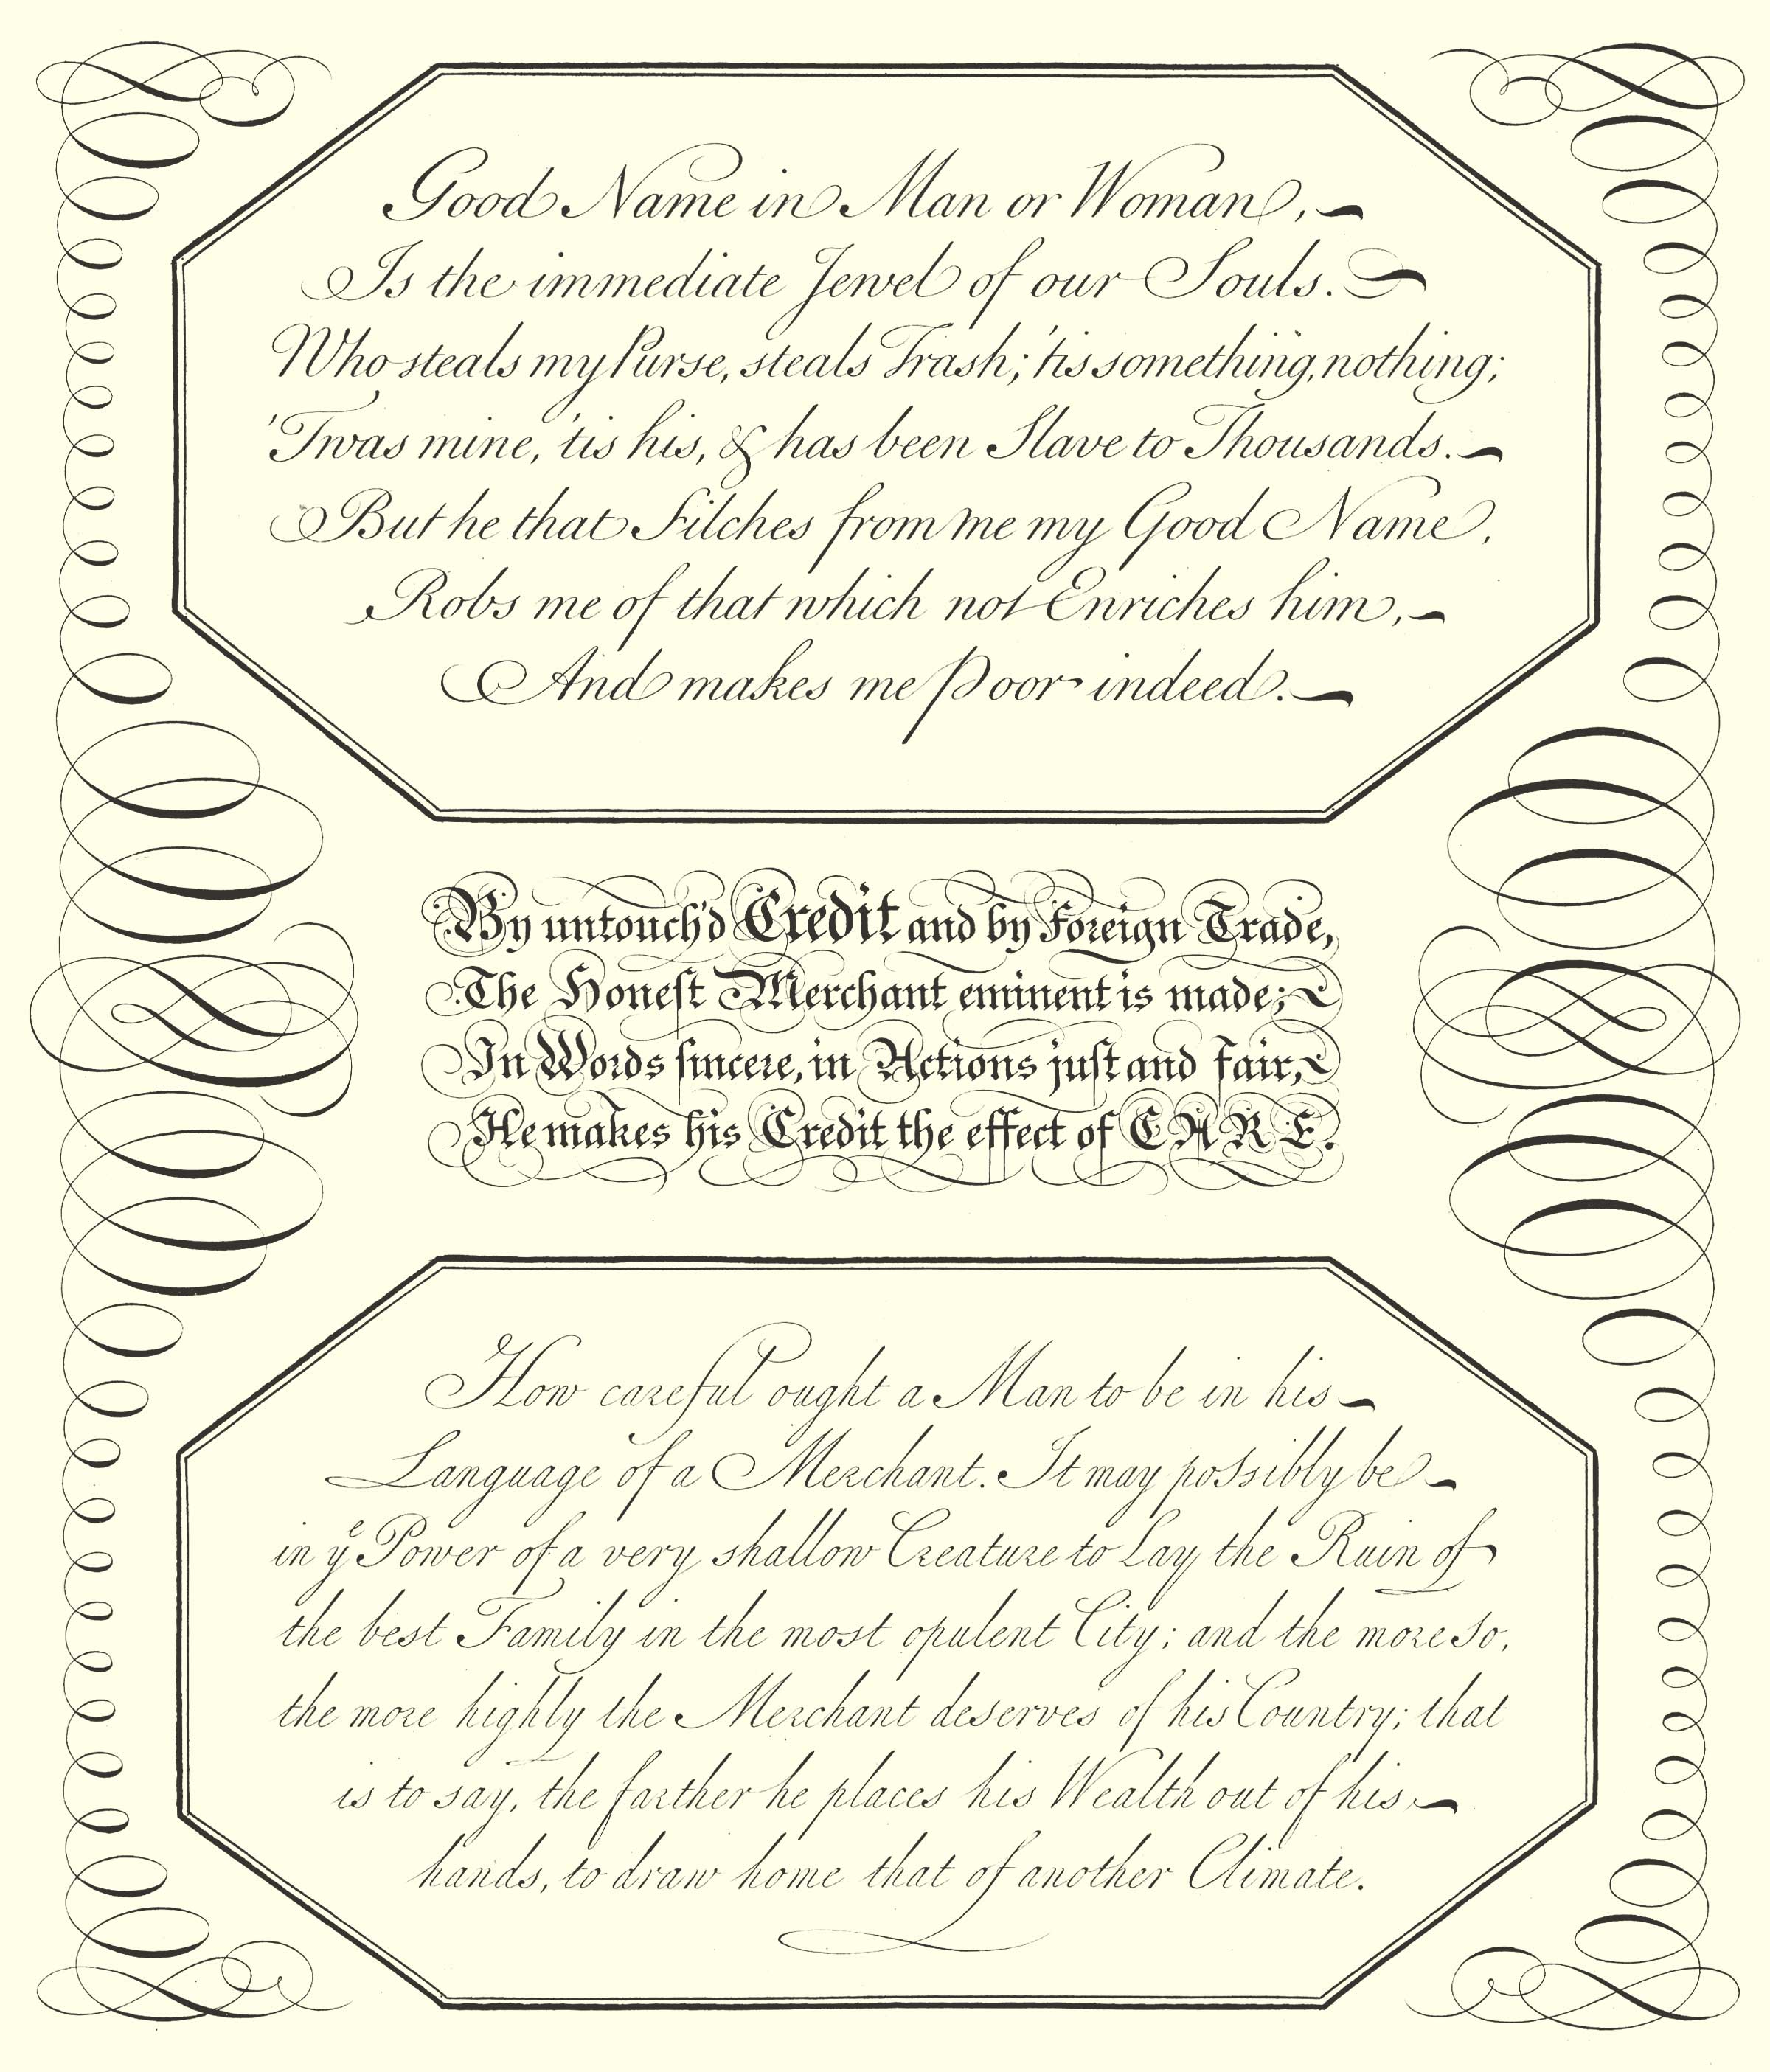 Good Name in Man or Woman,
Is the immediate Jewel of our Souls.
Who steals my Purse, steals Trash; 'tis something, nothing;
'Twas mine, 'tis his, & has been Slave to Thousands.
But he that Filches from me my Good Name,
Robs me of that which not Enriches him,
And makes me Poor indeed.
By untouch'd Credit and by Foreign Trade,
The Honest Merchant eminent is made;
In Words sincere, in Actions just and fair,
He makes his Credit the effect of CARE.
How careful ought a Man to be in his
Language of a Merchant. It may possibly be
in yͤ Power of a very shallow Creature to Lay the Ruin of
the best Family in the most opulent City; and the more so,
the more highly the Merchant deserves of his Country; that
is to say, the farther he places his Wealth out of his
hands, to draw home that of another Climate.